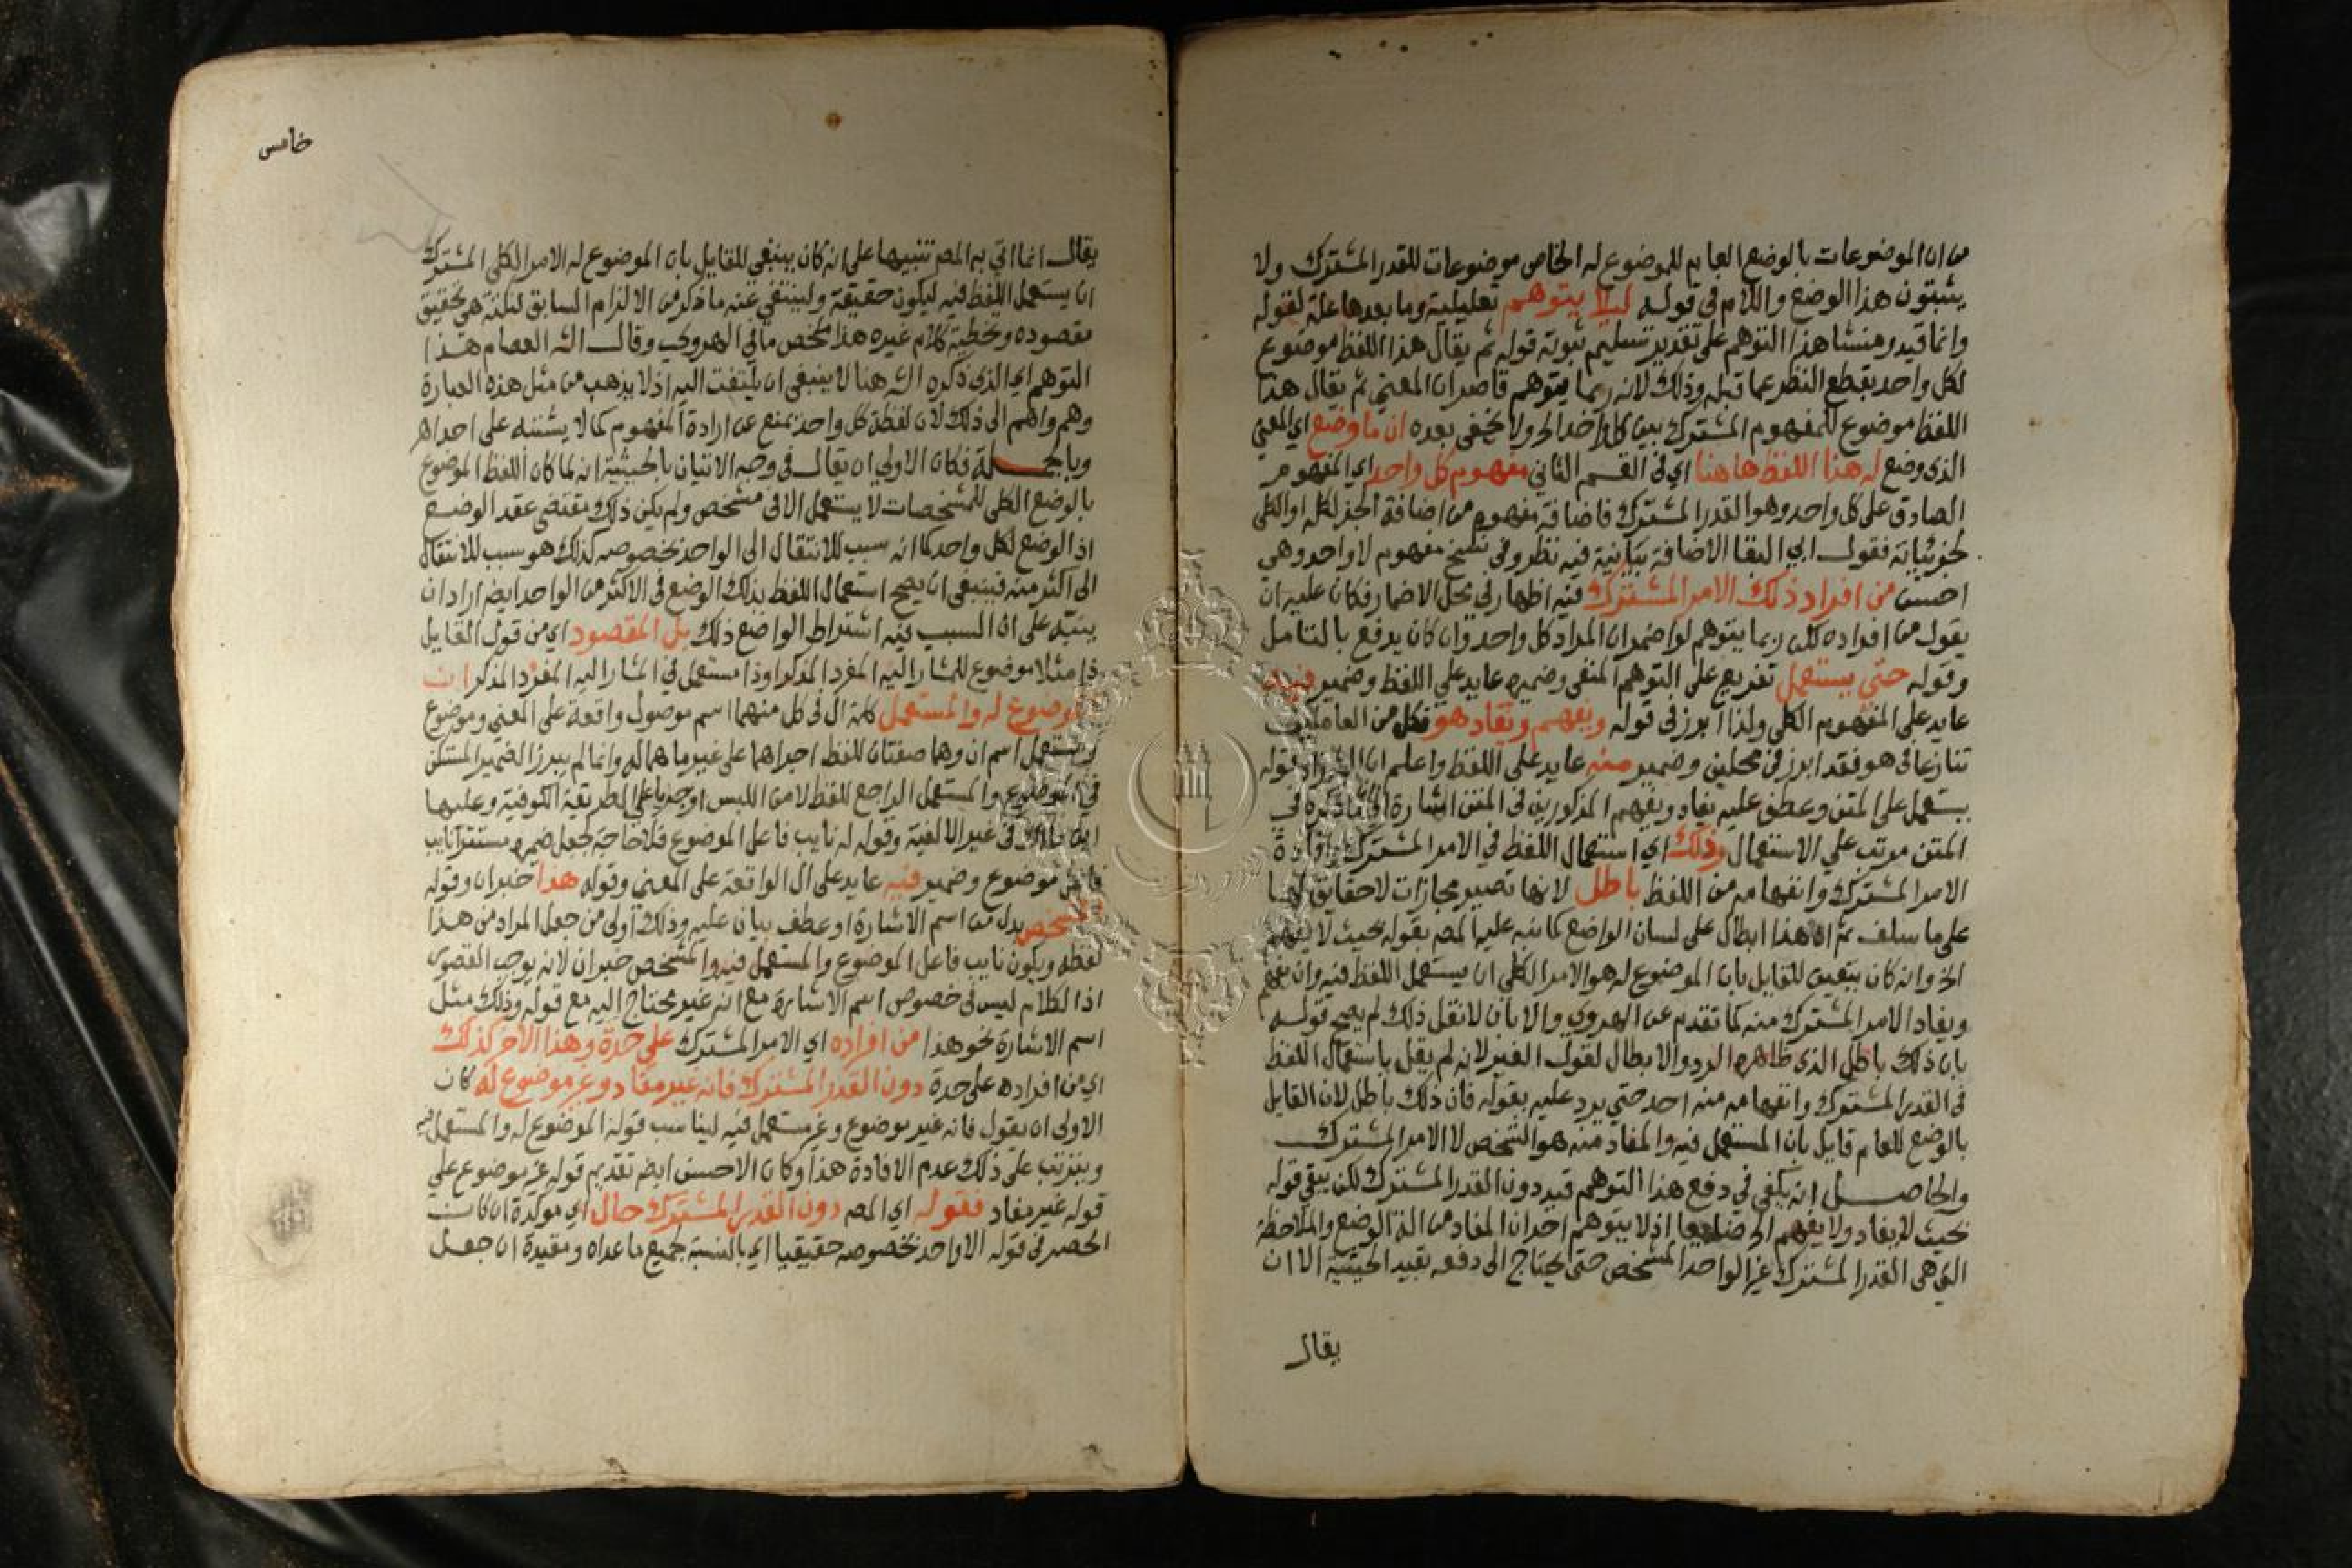 من ان الموضوعات بالوضع العام للموضوع له الخاص موضوعات للقدر المشترك ولا
يثبتون هذا الوضع واللام في قوله ليلا يتوهم تعليلية وما بعدها علة لقوله
وانما قيد ومنشا هذا التوهم على تقدير تسليم ثبوته قوله ثم يقال هذا اللفظ موضوع
لكل واحد بقطع النظر عما قبله وذلك لانه ربما يتوهم قاصر ان المعنى ثم يقال هذا
اللفظ موضوع للمفهوم المشترك بين كل واحد الخ ولا يخفى بعده ان ما وضع اي المعنى
الذي وضع له هذا اللفظ هاهنا اي في القسم الثاني مفهوم كل واحد اي المفهوم
الصادق على كل واحد وهو القدر المشترك فاضافة مفهوم من اضافة الجزء لكله او الكلي
لجزئياته فقول ابي البقا الاضافة بيانية فيه نظر وفي نسخ مفهوم لا واحد وهي
احسن من افراد ذلك الامر المشترك فيه اظهار في محل الاضمار فكان عليه ان
يقول من افراده لكن ربما يتوهم لو اضمر ان المراد كل واحد وان كان يدفع بالتامل
وقوله حتى يستعمل تفريع على التوهم المنفى وضميره عايد على اللفظ وضمير فيه
عايد على المفهوم الكلي ولذا ابرز في قوله ويفهم ويفاد هو فكل من العاملين
تنازعا في هو فقد ابرز في محلين وضمير منه عايد على اللفظ واعلم ان الش زاد قوله
يستعمل على المتن وعطف عليه يفاد ويفهم المذكورين في المتن اشارة الى ان ما ذكره في
المتن مرتب على الاستعمال وذلك اي استعمال اللفظ في الامر المشترك وافادة
الامر المشترك وانفهامه من اللفظ باطل لانها تصير مجازات لا حقايق لها
على ما سلف ثم ان هذا ابطال على لسان الواضع كما نبه عليه المص بقوله بحيث لا يفهم
الخ وانه كان يتعين للقايل بان الموضوع له هو الامر الكلي ان يستعمل اللفظ فيه وان يفهم
ويفاد الامر المشترك منه كما تقدم عن الهروي والا بان لا نقل ذلك لم يصح قوله
بان ذلك باطل الذي ظاهره الرد والابطال لقول الغير لانه لم يقل باستعمال اللفظ
في القدر المشترك وانفهامه منه احد حتى يرد عليه بقوله فان ذلك باطل لان القايل
بالوضع للعام قايل بان المستعمل فيه والمفاد منه هو الشخص لا الامر المشترك
والحاصل انه يكفي في دفع هذا التوهم قيد دون القدر المشترك لكن يبقى قوله
بحيث لا يفاد ولا يفهم الخ ضايعا اذ لا يتوهم احد ان المفاد من الة الوضع والملاحظة
التي هي القدر المشترك غير الواحد المشخص حتى يحتاج الى دفعه بقيد الحيثية الا ان
يقال
خامس
يقال انما اتى به المص تنبيها على انه كان ينبغي للقايل بان الموضوع له الامر الكلي المشترك
ان يستعمل اللفظ فيه ليكون حقيقة ولينتفي عنه ما ذكر من الالزام السابق لنكتة هي تحقيق
مقصوده وتخطية كلام غيره هذا ملخص ما في الهروي وقال الش العصام هذا
التوهم اي الذي ذكره الش هنا لا ينبغي ان يلتفت اليه اذ لا يذهب من مثل هذه العبارة
وهم واهم الى ذلك لان لفظة كل واحد تمنع عن ارادة المفهوم كما لا يشتبه على احد اهـ
وبالجملة فكان الاولى ان يقال في وجه الاتيان بالحيثية انه لما كان اللفظ الموضوع
بالوضع الكلي للمشخصات لا يستعمل الا في مشخص ولم يكن ذلك مقتضى عقد الوضع
اذ الوضع لكل واحد كما انه سبب للانتقال الى الواحد بخصوصه كذلك هو سبب للانتقال
الى اكثر منه فينبغي ان يصح استعمال اللفظ بذلك الوضع في الاكثر من الواحد ايض اراد ان
ينبه على ان السبب فيه اشتراط الواضع ذلك بل المقصود اي من قول القايل
ذا مثلا موضوع للمشار اليه المفرد المذكر او ذا مستعمل في المشار اليه المفرد المذكر ان
الموضوع له والمستعمل كلمة ال في كل منهما اسم موصول واقعة على المعنى وموضوع
ومستعمل اسم ان وهما صفتان للفظ اجراهما على غير ما هما له وانما لم يبرز الضمير المستكن
في الموضوع والمستعمل الراجع للفظ لامن اللبس او جريا على الطريقة الكوفية وعليها
ابن مالك في غير الالفية وقوله له نايب فاعل الموضوع فلا حاجة لجعل ضميره مستترا نايب
فاعل موضوع وضمير فيه عايد على ال الواقعة على المعنى وقوله هذا خبر ان وقوله
المشخص بدل من اسم الاشارة او عطف بيان عليه وذلك اولى من جعل المراد من هذا
لفظه ويكون نايب فاعل الموضوع والمستعمل فيه والمشخص خبر ان لانه يوجب القصور
اذ الكلام ليس في خصوص اسم الاشارة مع انه غير محتاج اليه مع قوله وذلك مثل
اسم الاشارة نحو هذا من افراده اي الامر المشترك على حدة وهذا الآخر كذلك
اي من افراده على حدة دون القدر المشترك فانه غير مفاد وغير موضوع له كان
الاولى ان يقول فانه غير موضوع وغير مستعمل فيه ليناسب قوله الموضوع له والمستعمل فيه
ويترتب على ذلك عدم الافادة هذا وكان الاحسن ايض تقديم قوله غير موضوع على
قوله غير مفاد فقوله اي المص دون القدر المشترك حال اي موكدة ان كان
الحصر في قوله الا واحد بخصوصه حقيقيا اي بالنسبة لجميع ما عداه ومقيدة ان جعل